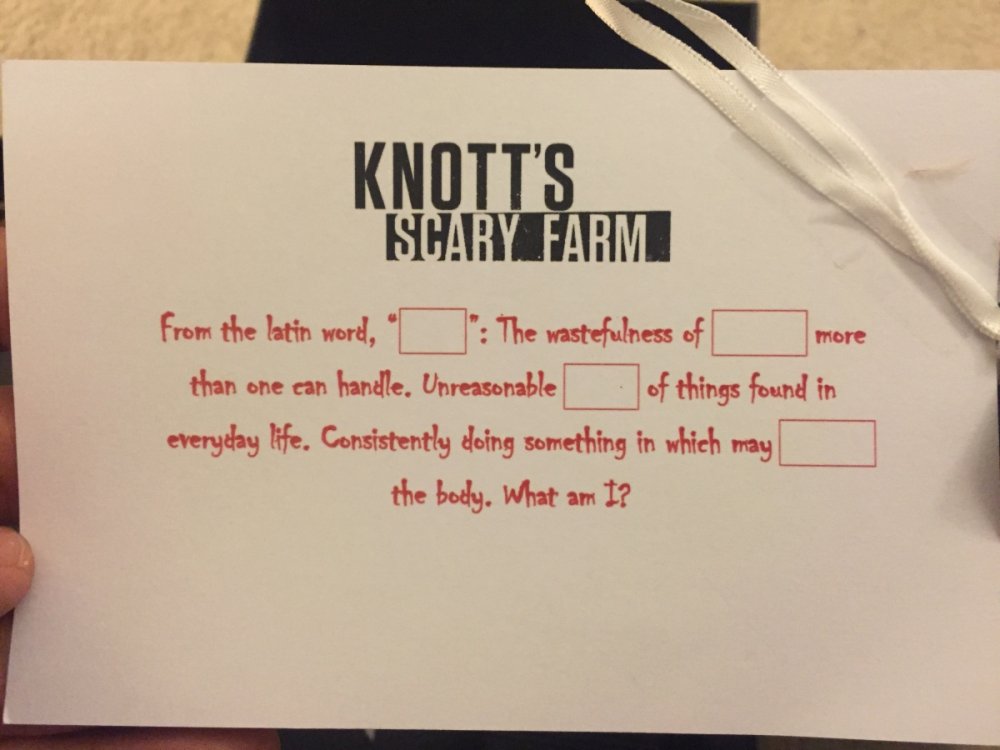 KNOTT'S
SCARY FARM
From the latin word, "   ": The wastefulness of     more
than one can handle. Unreasonable     of things found in
everyday life. Consistently doing something in which may
the body. What am I?